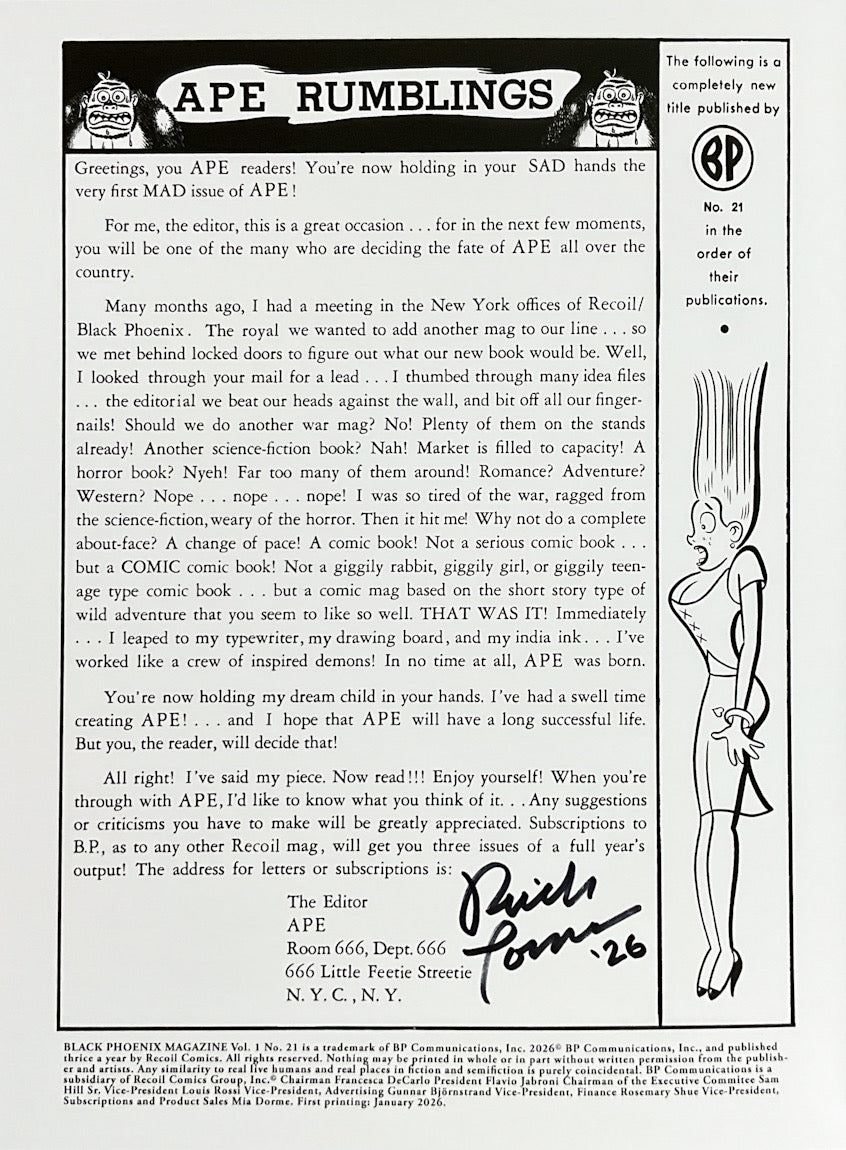 APE RUMBLINGS
Greetings, you APE readers! You're now holding in your SAD hands the
very first MAD issue of APE!
For me, the editor, this is a great occasion . . . for in the next few moments,
you will be one of the many who are deciding the fate of APE all over the
country.
Many months ago, I had a meeting in the New York offices of Recoil/
Black Phoenix. The royal we wanted to add another mag to our line . . . so
we met behind locked doors to figure out what our new book would be. Well,
I looked through your mail for a lead . . . I thumbed through many idea files
. . . the editorial we beat our heads against the wall, and bit off all our finger-
nails! Should we do another war mag? No! Plenty of them on the stands
already! Another science-fiction book? Nah! Market is filled to capacity! A
horror book? Nyeh! Far too many of them around! Romance? Adventure?
Western? Nope . . . nope . . . nope! I was so tired of the war, ragged from
the science-fiction, weary of the horror. Then it hit me! Why not do a complete
about-face? A change of pace! A comic book! Not a serious comic book . . .
but a COMIC comic book! Not a giggily rabbit, giggily girl, or giggily teen-
age type comic book . . . but a comic mag based on the short story type of
wild adventure that you seem to like so well. THAT WAS IT! Immediately
. . . I leaped to my typewriter, my drawing board, and my india ink. . . I've
worked like a crew of inspired demons! In no time at all, APE was born.
You're now holding my dream child in your hands. I've had a swell time
creating APE! . . . and I hope that APE will have a long successful life.
But you, the reader, will decide that!
All right! I've said my piece. Now read!!! Enjoy yourself! When you're
through with APE, I'd like to know what you think of it. . . Any suggestions
or criticisms you have to make will be greatly appreciated. Subscriptions to
B.P., as to any other Recoil mag, will get you three issues of a full year's
output! The address for letters or subscriptions is:
The Editor
APE
Room 666, Dept. 666
666 Little Feetie Streetie
N. Y. C. , N. Y.
Rich
'26
The following is a
completely new
title published by
BP
No. 21
in the
order of
their
publications.
BLACK PHOENIX MAGAZINE Vol. 1 No. 21 is a trademark of BP Communications, Inc. 2026© BP Communications, Inc., and published
thrice a year by Recoil Comics. All rights reserved. Nothing may be printed in whole or in part without written permission from the publish-
er and artists. Any similarity to real live humans and real places in fiction and semifiction is purely coincidental. BP Communications is a
subsidiary of Recoil Comics Group, Inc.© Chairman Francesca DeCarlo President Flavio Jabroni Chairman of the Executive Commitee Sam
Hill Sr. Vice-President Louis Rossi Vice-President, Advertising Gunnar Björnstrand Vice-President, Finance Rosemary Shue Vice-President,
Subscriptions and Product Sales Mia Dorme. First printing: January 2026.